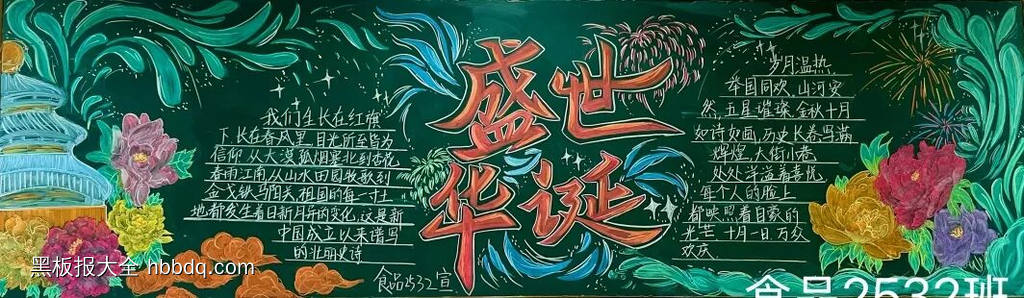 盛世
华诞
我们生长在红旗
下,长在春风里,目光所至皆为
信仰,从大漠孤烟塞北到杏花
春雨江南,从山水田园牧歌到
金戈铁马阳关,祖国的每一寸土
地都发生着日新月异的变化,这是新
中国成立以来谱写
的壮丽史诗
食品2532宣
岁月温热
举国同欢,山河安
然,五星璀璨,金秋十月
如诗如画,历史长卷写满
辉煌,大街小巷
处处洋溢着喜悦
每个人的脸上
都映照着自豪的
光芒 十月一日,万众
欢庆.
黑板报大全 hbbdq.com
食品2532班